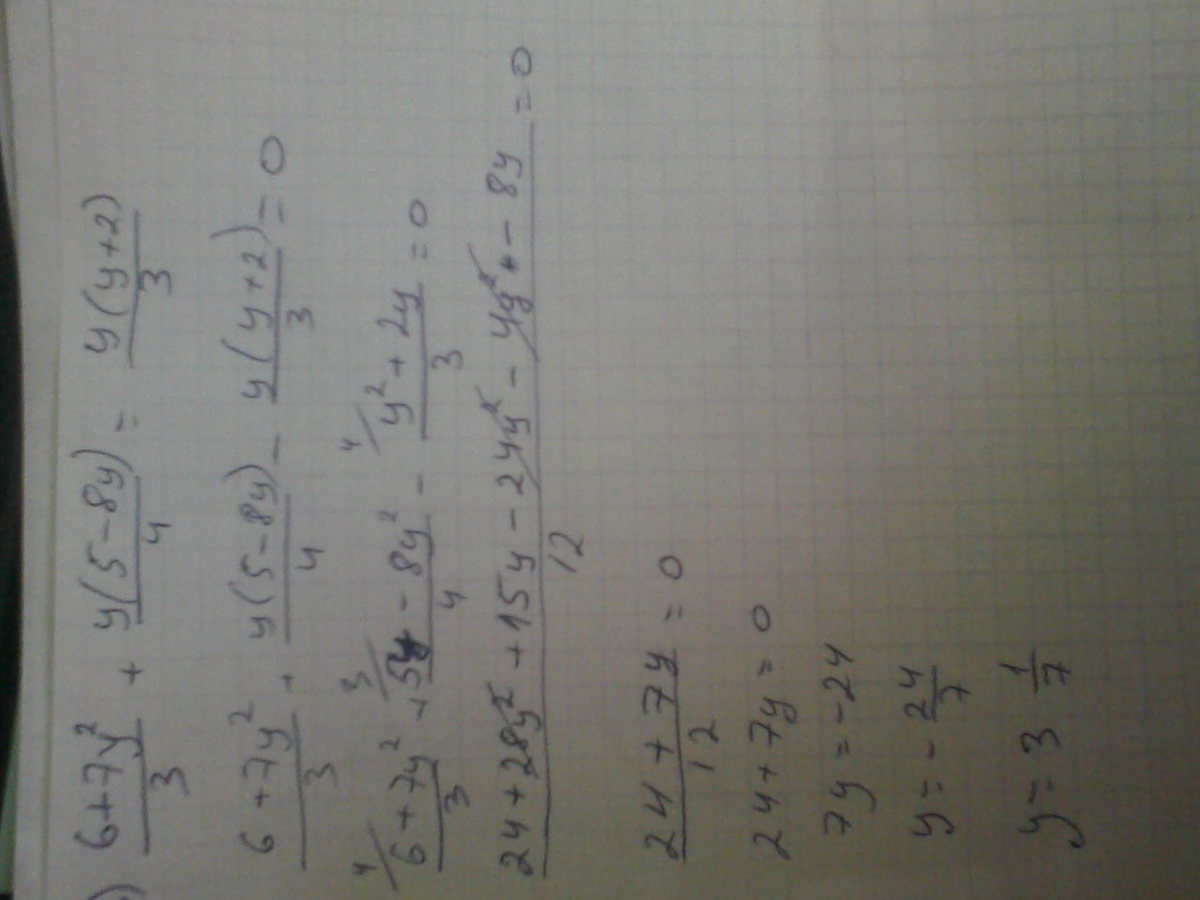 ) (6+7y²)/3 + y(5-8y)/4 = y(y+2)/3
(6+7y²)/3 + y(5-8y)/4 - y(y+2)/3 = 0
4/ (6+7y²)/3 + 3/ (5y-8y²)/4 - 4/ (y²+2y)/3 = 0
(24+28y²+15y-24y²-4y²-8y)/12 = 0
(24+7y)/12 = 0
24+7y=0
7y=-24
y=-24/7
y=3 1/7